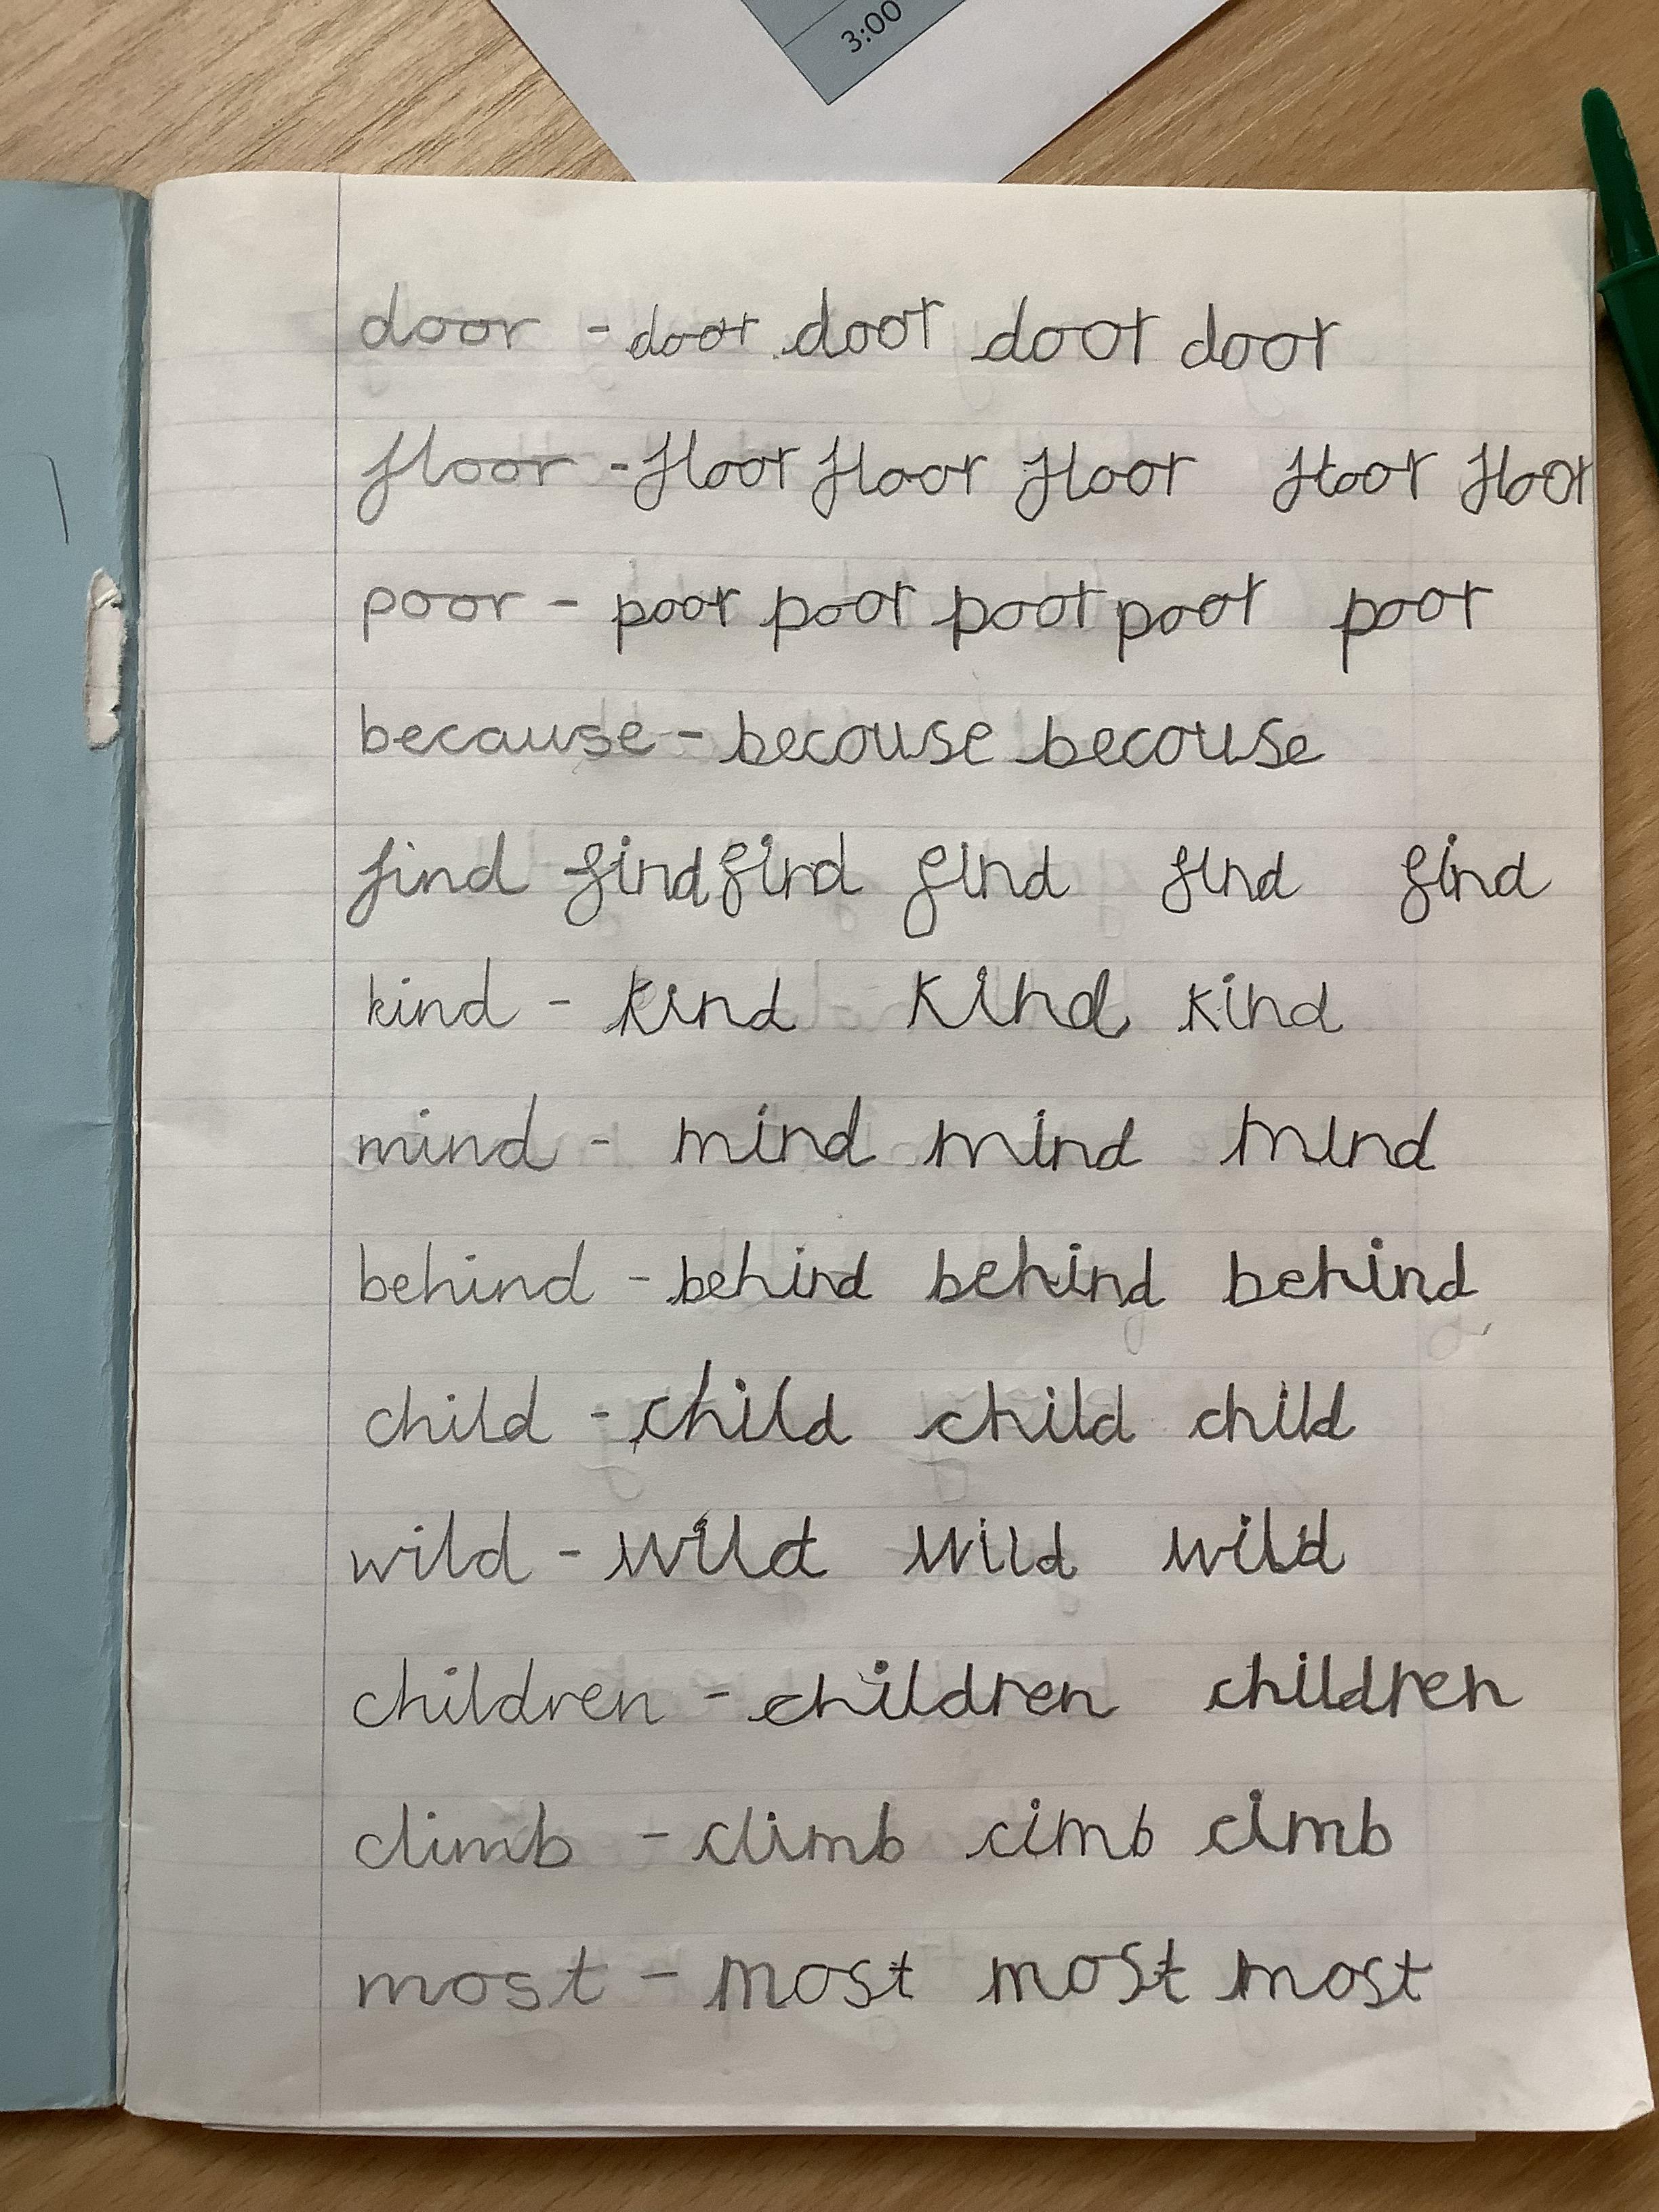 3:00
door - door door door door
floor - floor floor floor floor floor
poor - poor poor poor poor poor
because - becouse becouse
find find find find find find
kind - kind kind kind
mind - mind mind mind
behind - behind behind behind
child - child child child
wild - wild wild wild
children - children children
climb - climb cimb climb
most - most most most